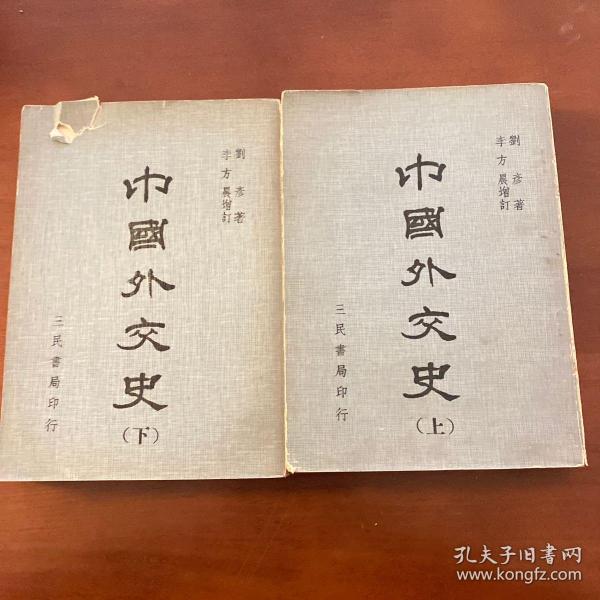 劉彥著
李方晨增訂
中國外交史
(下)
三民書局印行
劉彥著
李方晨增訂
中國外交史
(上)
三民書局印行
孔夫子旧書网
www.kongfz.com